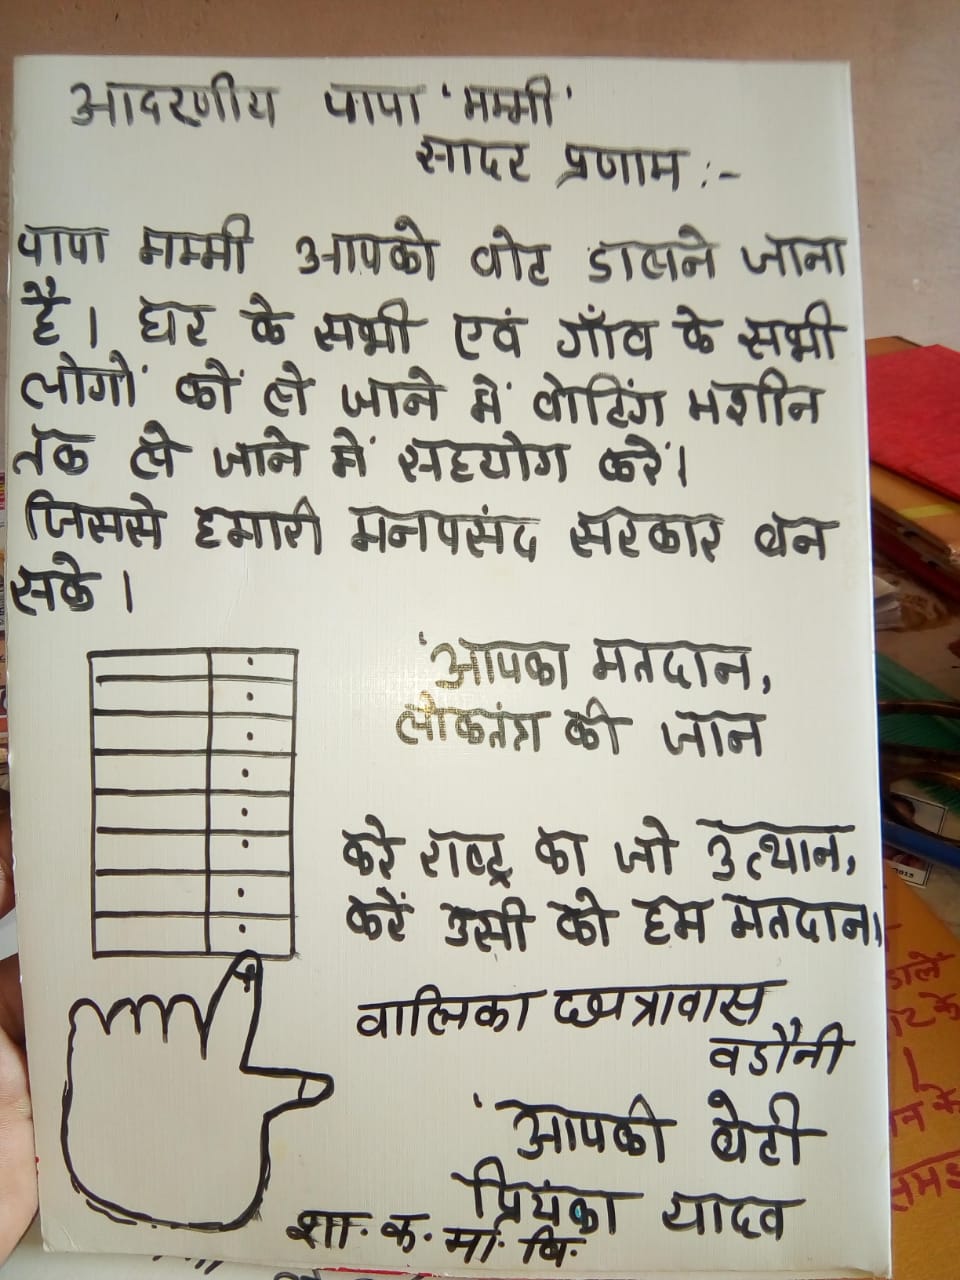 आदरणीय पापा 'मम्मी'
सादर प्रणाम :-
पापा मम्मी आपको वोट डालने जाना
है। घर के सभी एवं गाँव के सभी
लोगों कों ले जाने में वोटिंग मशीन
तक ले जाने में सहयोग करें।
जिससे हमारी मनपसंद सरकार बन
सके।
'आपका मतदान,
लोकतंत्र की जान
करे राष्ट्र का जो उत्थान,
करें उसी को हम मतदान।
बालिका छात्रावास
बडौनी
'आपकी बेटी
प्रियंका यादव
शा. क. मा. वि.
डाले
समझ